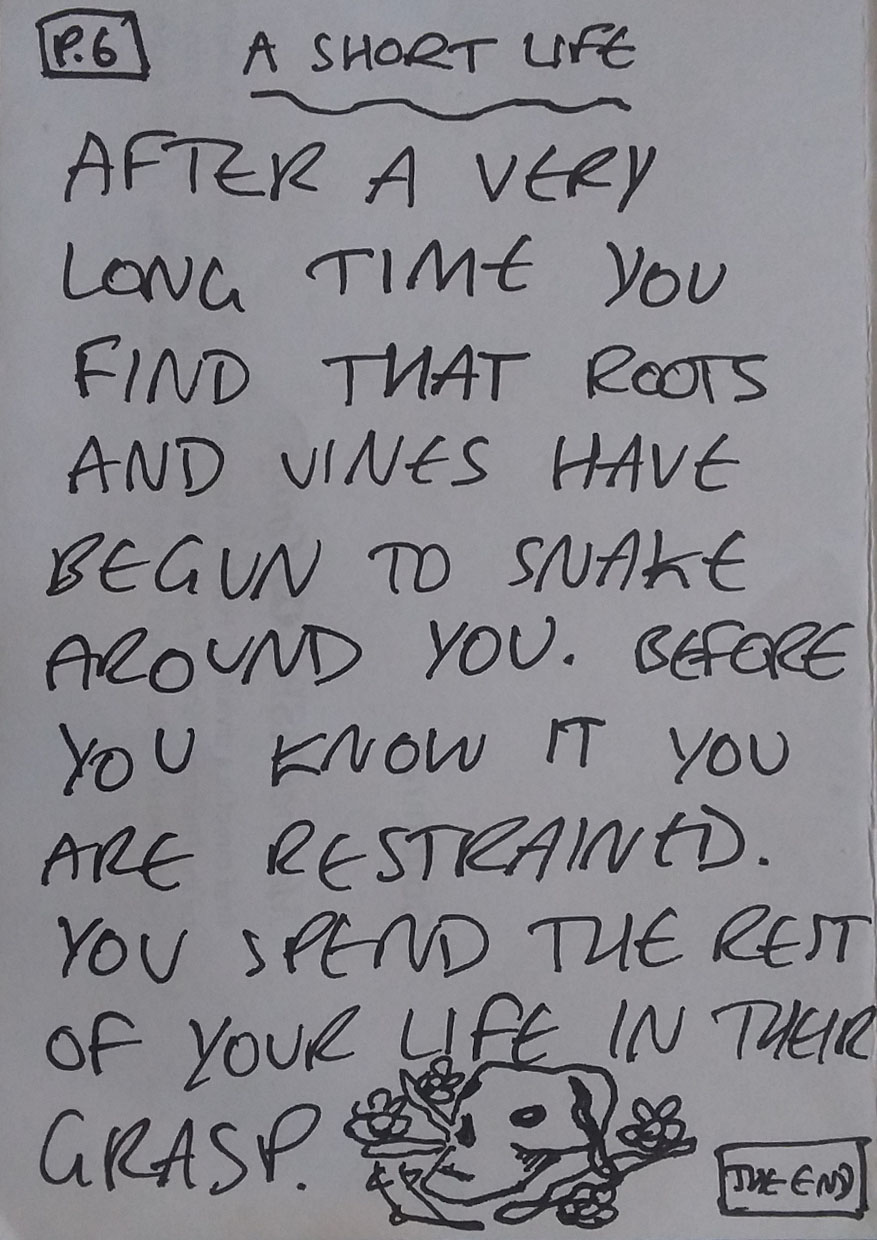 P.6 A SHORT LIFE
AFTER A VERY
LONG TIME YOU
FIND THAT ROOTS
AND VINES HAVE
BEGUN TO SNAKE
AROUND YOU. BEFORE
YOU KNOW IT YOU
ARE RESTRAINED.
YOU SPEND THE REST
OF YOUR LIFE IN THEIR
GRASP.
THE END